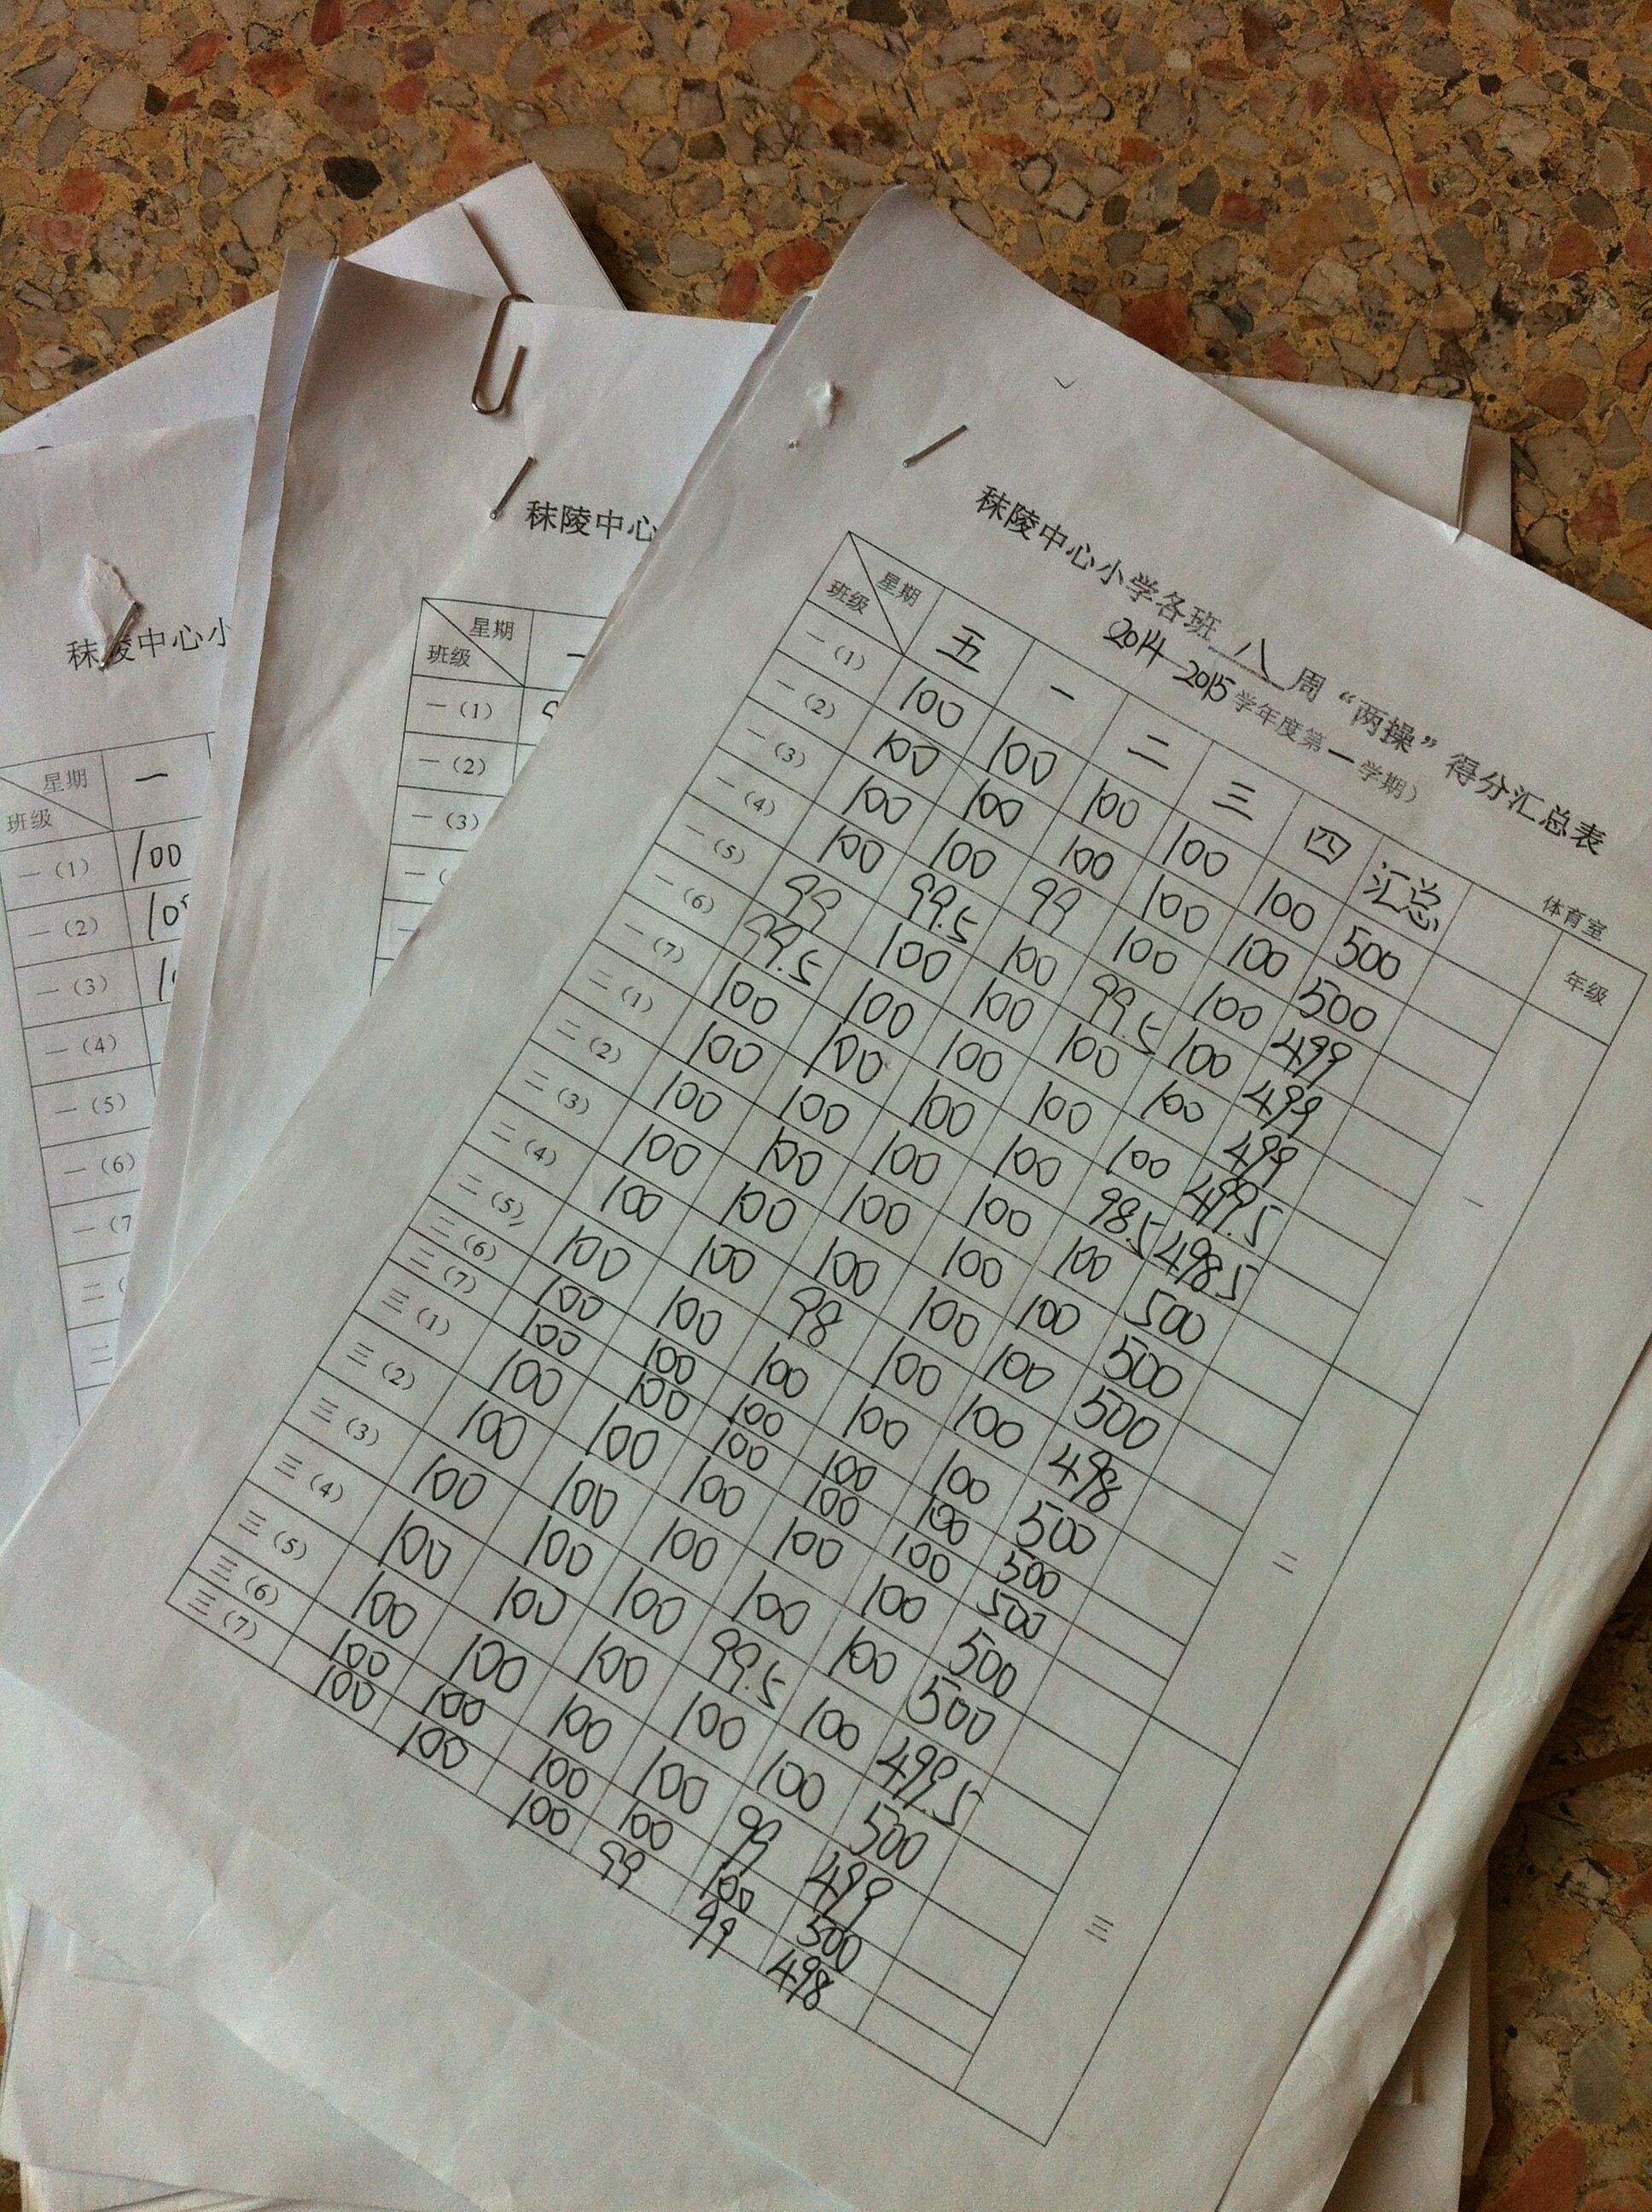 秣陵中心小学各班 八 周“两操”得分汇总表
2014-2015学年度第一学期)
体育室
星期 五 一 二 三 四 汇总 年级
班级
一（1） 100 100 100 100 100 500
一（2） 100 100 100 100 100 500
一（3） 100 100 99 100 100 499
一（4） 100 99.5 100 99.5 100 499 一
一（5） 99 100 100 100 100 499
一（6） 99.5 100 100 100 100 499.5
一（7） 100 100 100 100 98.5 498.5
二（1） 100 100 100 100 100 500
二（2） 100 100 100 100 100 500
二（3） 100 100 100 100 100 500
二（4） 100 100 98 100 100 498 二
二（5） 100 100 100 100 100 500
二（6） 100 100 100 100 100 500
二（7） 100 100 100 100 100 500
三（1） 100 100 100 100 100 500
三（2） 100 100 100 100 100 500
三（3） 100 100 100 99.5 100 499.5
三（4） 100 100 100 100 100 500 三
三（5） 100 100 100 100 99 499
三（6） 100 100 100 100 100 500
三（7） 100 100 100 99 99 498
秣陵中心
星期 一
班级
一（1）
一（2）
一（3）
秣陵中心小
星期 一
班级
一（1） 100
一（2） 10
一（3）
一（4）
一（5）
一（6）
一（7
二（